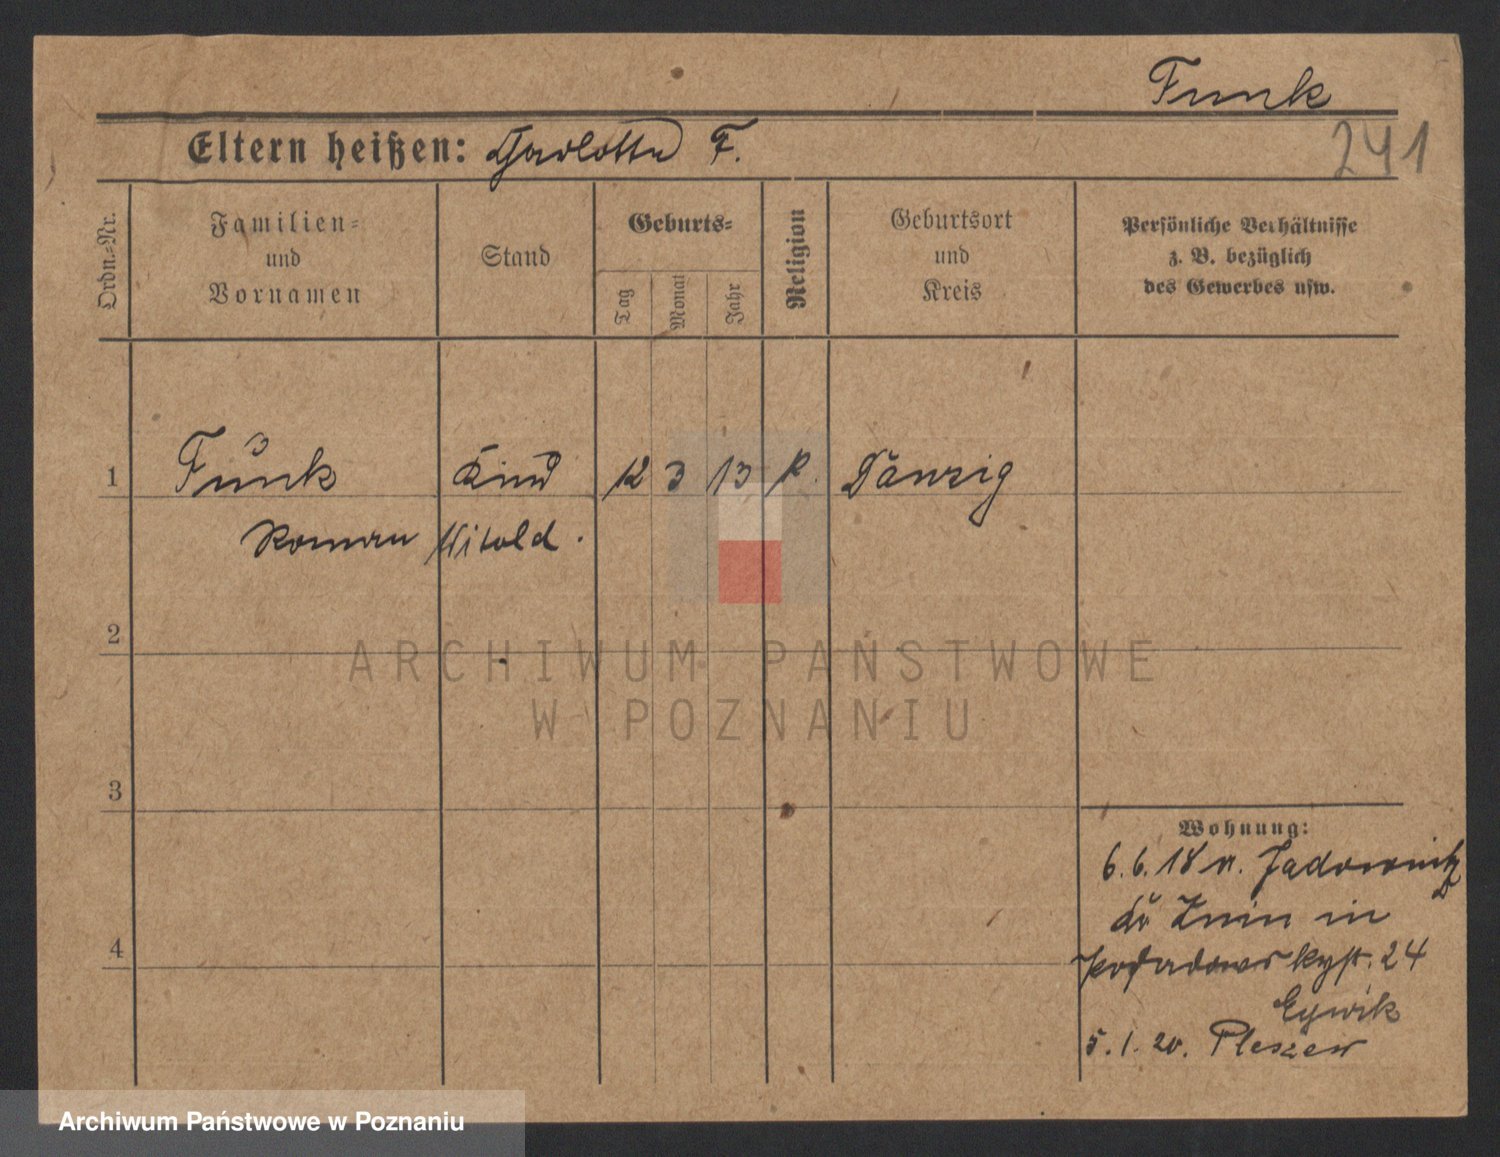 Funk
241
Eltern heißen: Charlotte F.
Ordn.-Nr.
Familien-
und
Vornamen
Stand
Geburts-
Tag
Monat
Jahr
Religion
Geburtsort
und
Kreis
Persönliche Verhältnisse
z. B. bezüglich
des Gewerbes usw.
1 Funk Kind 12 3 13 k. Danzig
Roman Witold.
2
3
4
Wohnung:
6.6.18 n.
Znin in
24
5.1.20. Pleszew
ARCHIWUM PAŃSTWOWE
W POZNANIU
Archiwum Państwowe w Poznaniu